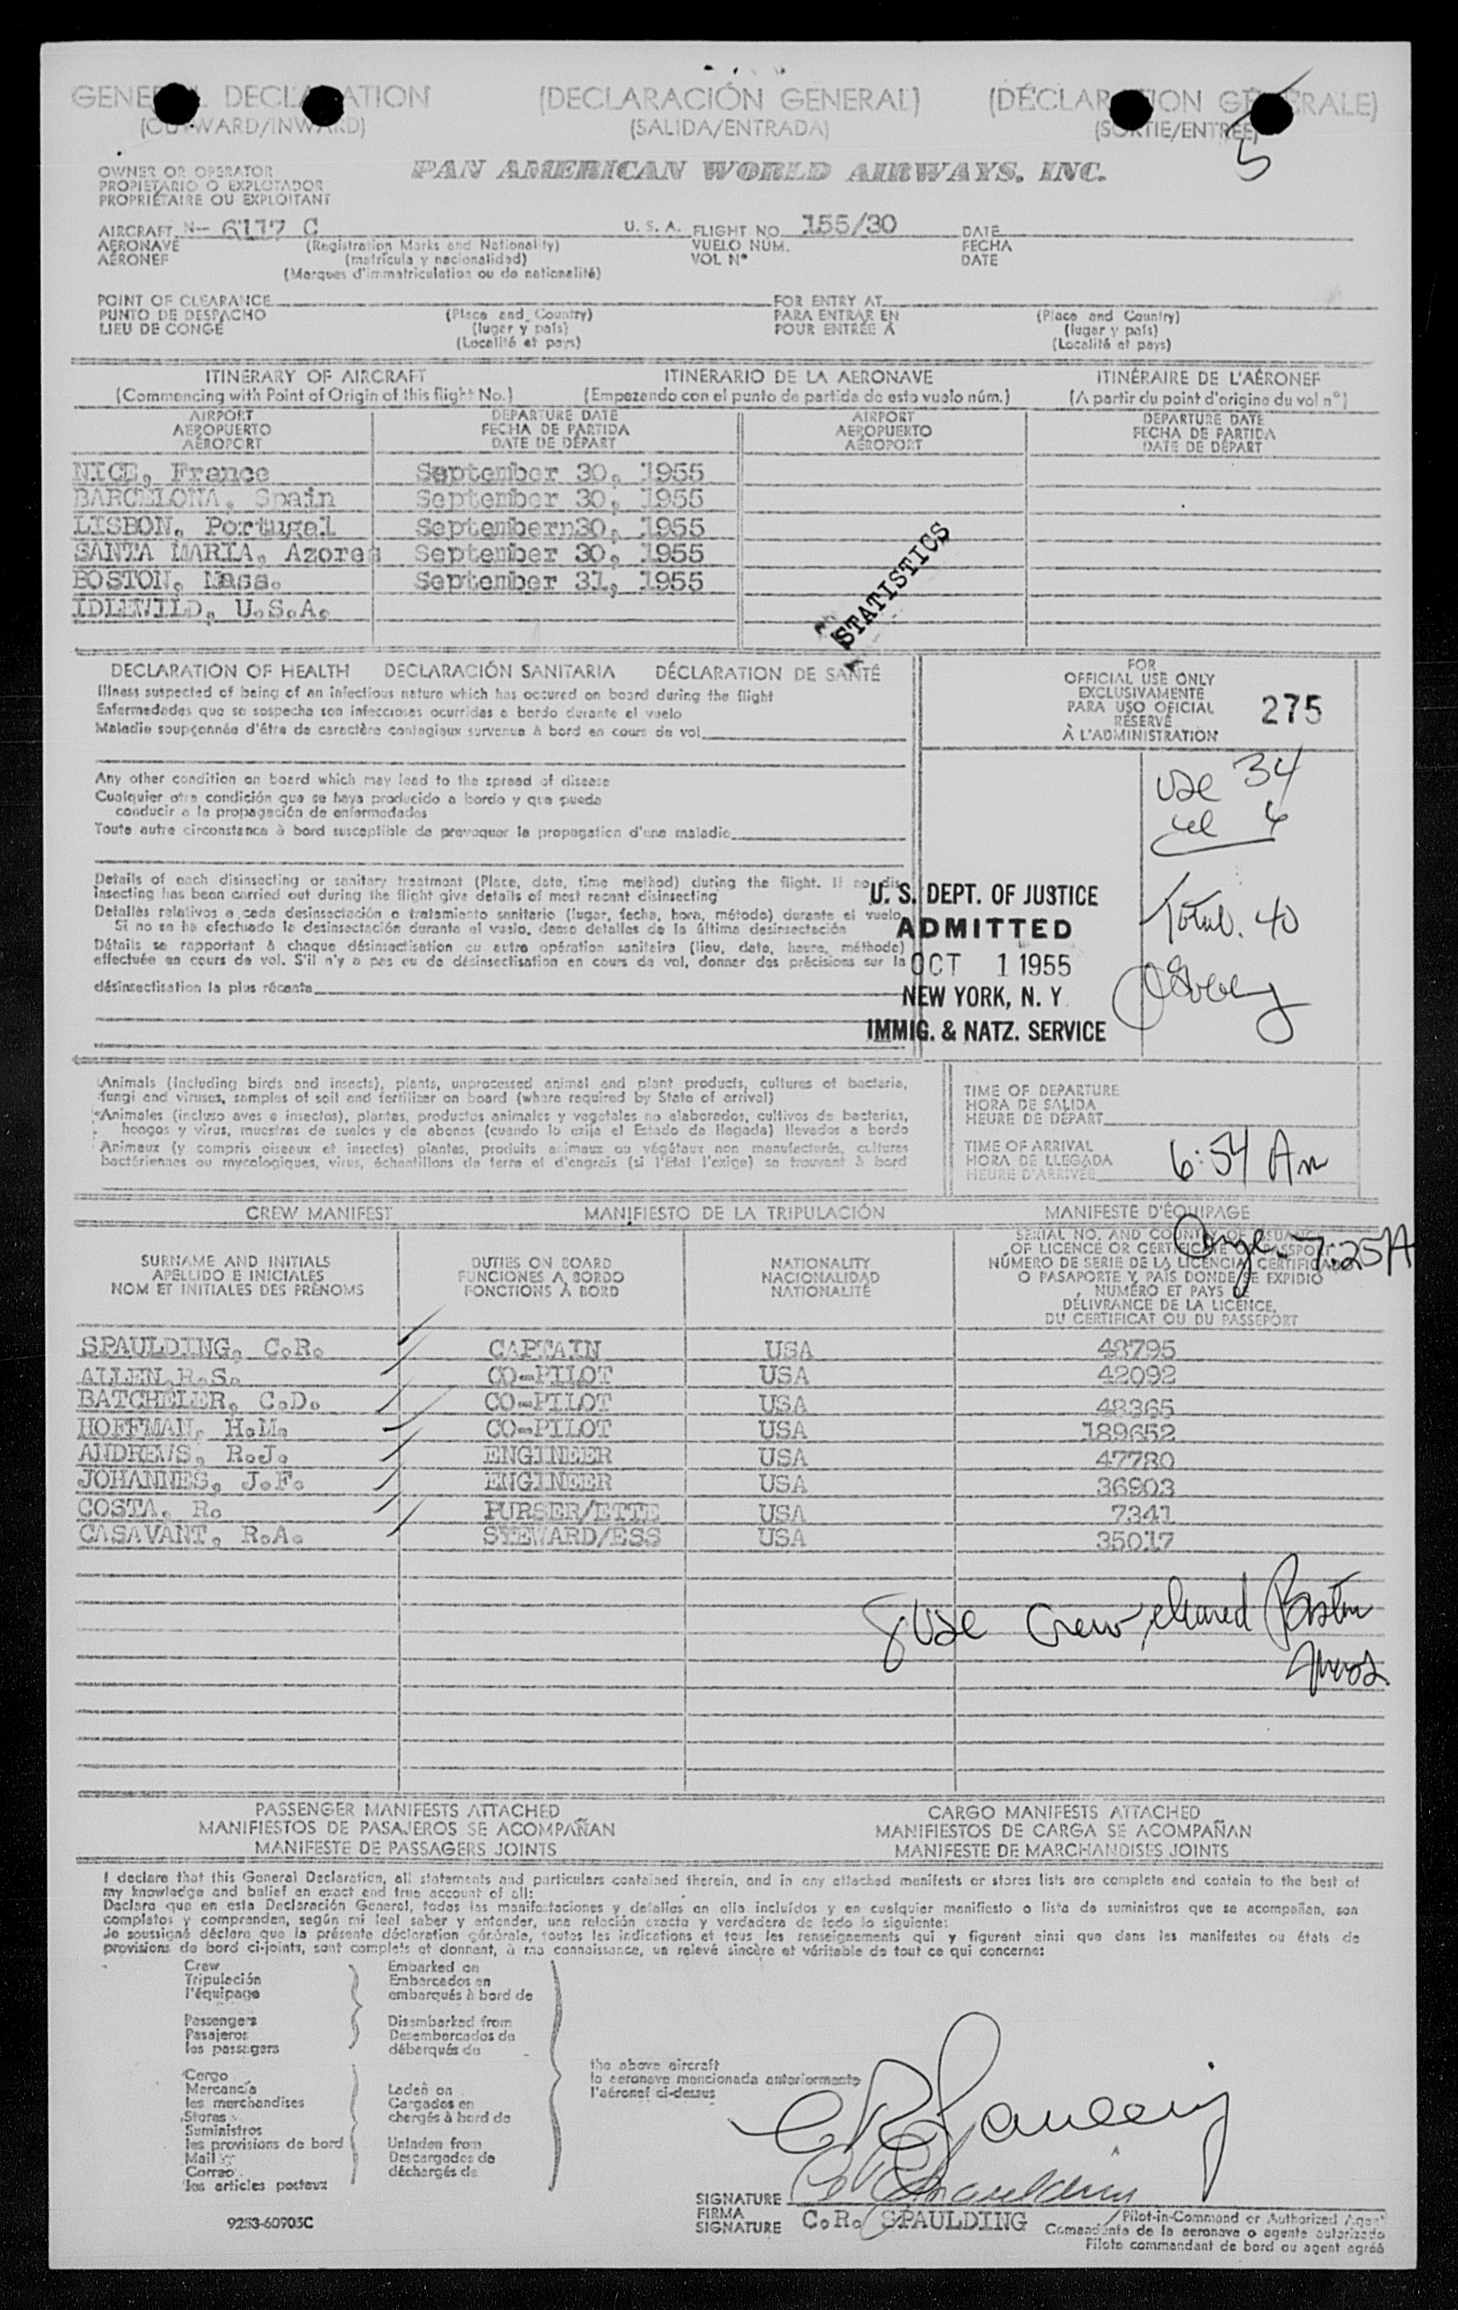 GENERAL DECLARATION (DECLARACIÓN GENERAL) (DÉCLARATION GÉNÉRALE)
(OUTWARD/INWARD) (SALIDA/ENTRADA) (SORTIE/ENTRÉE)
5
OWNER OR OPERATOR PAN AMERICAN WORLD AIRWAYS, INC.
PROPIETARIO O EXPLOTADOR
PROPRIÉTAIRE OU EXPLOITANT
AIRCRAFT N- 6117 C U. S. A. FLIGHT NO. 155/30 DATE
AERONAVE (Registration Marks and Nationality) VUELO NÚM. FECHA
AÉRONEF (matrícula y nacionalidad) VOL Nº DATE
(Marques d'immatriculation ou de nationalité)
POINT OF CLEARANCE FOR ENTRY AT
PUNTO DE DESPACHO (Place and Country) PARA ENTRAR EN (Place and Country)
LIEU DE CONGÉ (lugar y país) POUR ENTRÉE À (lugar y país)
(Localité et pays) (Localité et pays)
ITINERARY OF AIRCRAFT ITINERARIO DE LA AERONAVE ITINÉRAIRE DE L'AÉRONEF
(Commencing with Point of Origin of this flight No.) (Empezando con el punto de partida de esto vuelo núm.) (A partir du point d'origine du vol nº)
AIRPORT DEPARTURE DATE AIRPORT DEPARTURE DATE
AEROPUERTO FECHA DE PARTIDA AEROPUERTO FECHA DE PARTIDA
AÉROPORT DATE DE DÉPART AÉROPORT DATE DE DÉPART
NICE, France September 30, 1955
BARCELONA, Spain September 30, 1955
LISBON, Portugal Septembern30, 1955
SANTA MARIA, Azores September 30, 1955
BOSTON, Mass. September 31, 1955
IDLEWILD, U.S.A.
STATISTICS
DECLARATION OF HEALTH DECLARACIÓN SANITARIA DÉCLARATION DE SANTÉ
Illness suspected of being of an infectious nature which has occured on board during the flight
Enfermedades que se sospecha son infecciosas ocurridas a bordo durante el vuelo
Maladie soupçonnée d'être de caractère contagieux survenue à bord en cours de vol
FOR
OFFICIAL USE ONLY
EXCLUSIVAMENTE
PARA USO OFICIAL
RÉSERVÉ
À L'ADMINISTRATION
275
Any other condition on board which may lead to the spread of disease
Cualquier otra condición que se haya producido a bordo y que pueda
conducir a la propagación de enfermedades
Toute autre circonstance à bord susceptible de provoquer la propagation d'une maladie
USC 34
Total. 40
Details of each disinsecting or sanitary treatment (Place, date, time method) during the flight. If no dis-
insecting has been carried out during the flight give details of most recent disinsecting
Detalles relativos a cada desinsectación o tratamiento sanitario (lugar, fecha, hora, método) durante el vuelo
Si no se ha efectuado la desinsectación durante el vuelo, dense detalles de la última desinsectación
Détails se rapportant à chaque désinsectisation ou autre opération sanitaire (lieu, date, heure, méthode)
effectuée en cours de vol. S'il n'y a pas eu de désinsectisation en cours de vol, donner des précisions sur la
désinsectisation la plus récente
U. S. DEPT. OF JUSTICE
ADMITTED
OCT 1 1955
NEW YORK, N. Y.
IMMIG. & NATZ. SERVICE
Animals (including birds and insects), plants, unprocessed animal and plant products, cultures of bacteria,
fungi and viruses, samples of soil and fertilizer on board (where required by State of arrival)
Animales (incluso aves e insectos), plantas, productos animales y vegetales no elaborados, cultivos de bacterias,
hongos y virus, muestras de suelos y de abonos (cuando lo exija el Estado de llegada) llevados a bordo
Animaux (y compris oiseaux et insectes) plantes, produits animaux ou végétaux non manufacturés, cultures
bactériennes ou mycologiques, virus, échantillons de terre et d'engrais (si l'État l'exige) se trouvant à bord
TIME OF DEPARTURE
HORA DE SALIDA
HEURE DE DÉPART
TIME OF ARRIVAL
HORA DE LLEGADA 6:54 Am
HEURE D'ARRIVÉE
CREW MANIFEST MANIFIESTO DE LA TRIPULACIÓN MANIFESTE D'ÉQUIPAGE
7:25 A
SURNAME AND INITIALS DUTIES ON BOARD NATIONALITY SERIAL NO. AND COUNTRY OF ISSUANCE
APELLIDO E INICIALES FUNCIONES A BORDO NACIONALIDAD OF LICENCE OR CERTIFICATE OR PASSPORT
NOM ET INITIALES DES PRÉNOMS FONCTIONS À BORD NATIONALITÉ NÚMERO DE SERIE DE LA LICENCIA, CERTIFICADO
O PASAPORTE Y PAÍS DONDE SE EXPIDIÓ
NUMÉRO ET PAYS DE
DÉLIVRANCE DE LA LICENCE,
DU CERTIFICAT OU DU PASSEPORT
SPAULDING, C.R. CAPTAIN USA 48795
ALLEN,R.S. CO-PILOT USA 42092
BATCHELER, C.D. CO-PILOT USA 48365
HOFFMAN, H.M. CO-PILOT USA 189652
ANDREWS, R.J. ENGINEER USA 47780
JOHANNES, J.F. ENGINEER USA 36903
COSTA, R. PURSER/ETTE USA 7341
CASAVANT, R.A. STEWARD/ESS USA 35017
8 USC Crew cleared Boston
PASSENGER MANIFESTS ATTACHED CARGO MANIFESTS ATTACHED
MANIFIESTOS DE PASAJEROS SE ACOMPAÑAN MANIFIESTOS DE CARGA SE ACOMPAÑAN
MANIFESTE DE PASSAGERS JOINTS MANIFESTE DE MARCHANDISES JOINTS
I declare that this General Declaration, all statements and particulars contained therein, and in any attached manifests or stores lists are complete and contain to the best of
my knowledge and belief an exact and true account of all:
Declaro que en esta Declaración General, todas las manifestaciones y detalles en ella incluídos y en cualquier manifiesto o lista de suministros que se acompañan, son
completos y comprenden, según mi leal saber y entender, una relación exacta y verdadera de todo lo siguiente:
Je soussigné déclare que la présente déclaration générale, toutes les indications et tous les renseignements qui y figurent ainsi que dans les manifestes ou états de
provisions de bord ci-joints, sont complets et donnent, à ma connaissance, un relevé sincère et véritable de tout ce qui concerne:
Crew Embarked on
Tripulación Embarcados en
l'équipage embarqués à bord de
Passengers Disembarked from
Pasajeros Desembarcados de
les passagers débarqués de
the above aircraft
la aeronave mencionada anteriormente
l'aéronef ci-dessus
Cargo
Mercancía Laden on
les marchandises Cargados en
Stores chargés à bord de
Suministros
les provisions de bord Unladen from
Mail Descargados de
Correo déchargés de
les articles postaux
C R Spaulding
C R Spaulding
SIGNATURE
FIRMA
SIGNATURE C.R. SPAULDING
Pilot-in-Command or Authorized Agent
Comandante de la aeronave o agente autorizado
Pilote commandant de bord ou agent agréé
9253-60903C